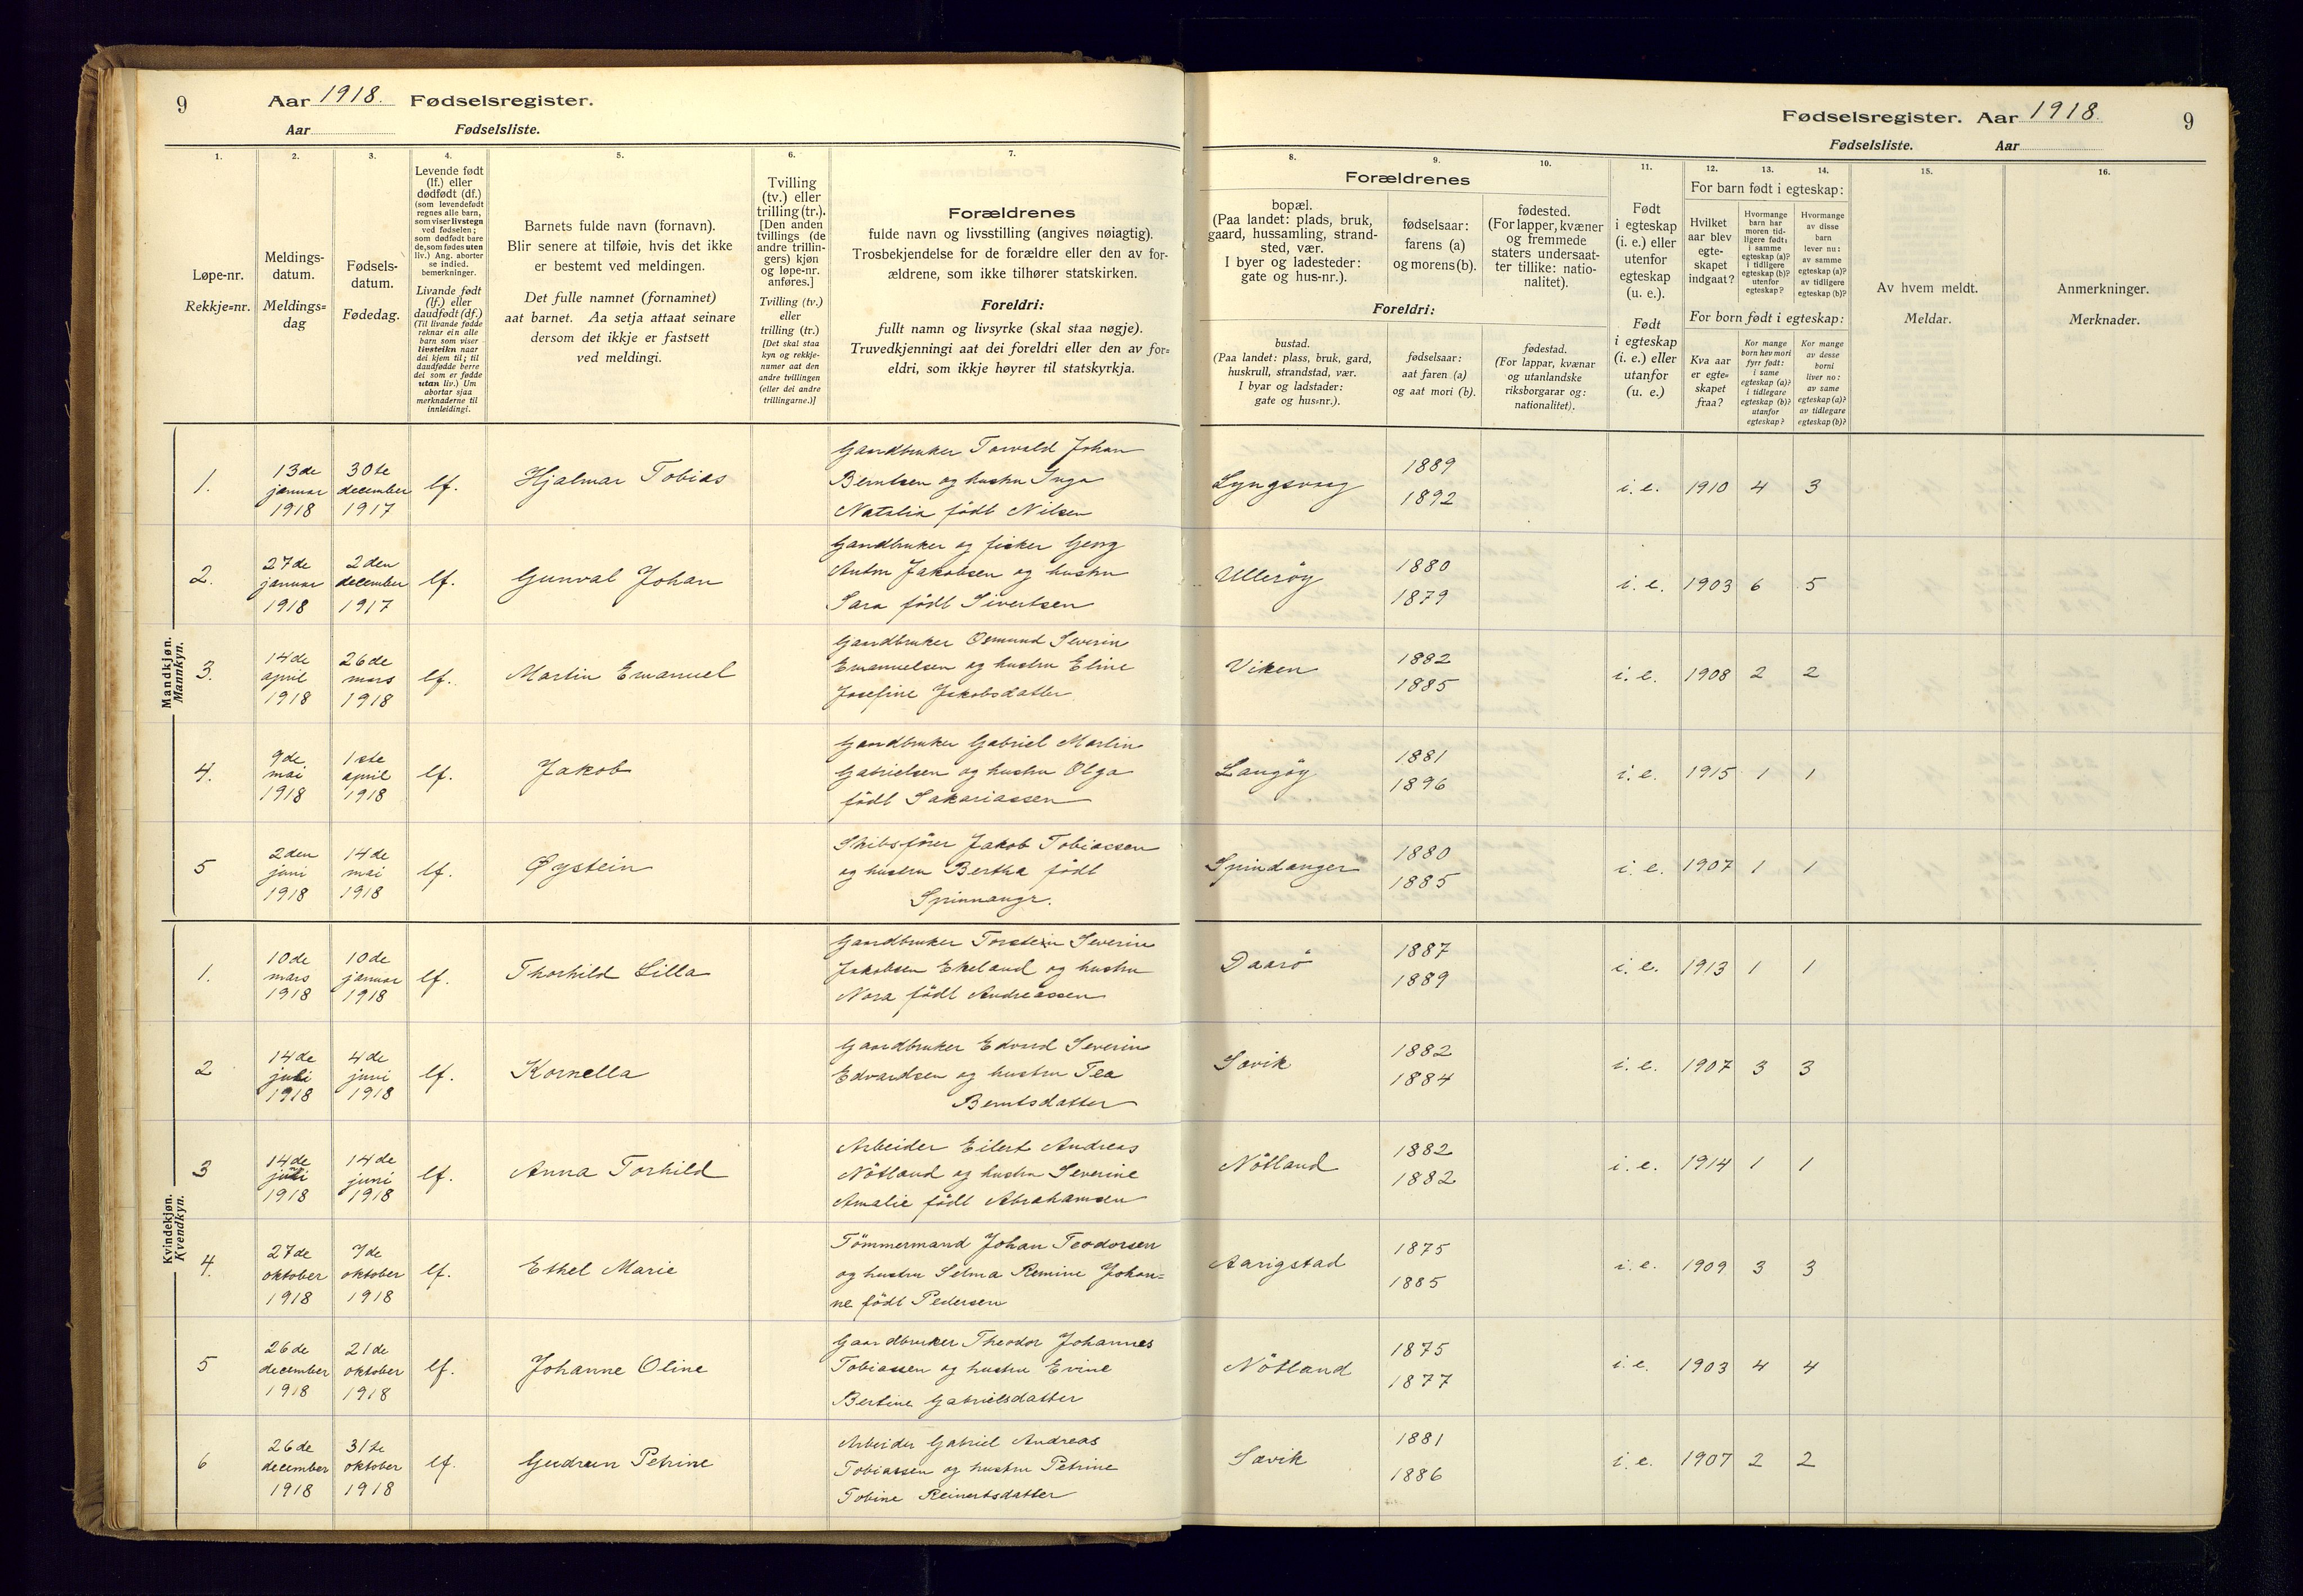 9
Aar 1918. Fødselsregister.
Aar Fødselsliste.
1.
Løpe-nr.
Rekkje=nr.
2.
Meldings-
datum.
Meldings=
dag
3.
Fødsels-
datum.
Fødedag.
4.
Levende født
(lf.) eller
dødfødt (df.)
(som levendefødt
regnes alle barn,
som viser livstegn
ved fødselen;
som dødfødt bare
de, som fødes uten
liv.) Ang. aborter
se indled.
bemerkninger.
Livande født
(lf.) eller
daudfødt (df.)
(Til livande fødde
reknar ein alle
barn som viser
livsteikn naar
dei kjem til; til
daudfødde berre
dei som er fødde
utan liv.) Um
abortar sjaa
merknaderne til
innleidingi.
5.
Barnets fulde navn (fornavn).
Blir senere at tilføie, hvis det ikke
er bestemt ved meldingen.
Det fulle namnet (fornamnet)
aat barnet. Aa setja attaat seinare
dersom det ikkje er fastsett
ved meldingi.
6.
Tvilling
(tv.) eller
trilling (tr.).
[Den anden
tvillings (de
andre trillin-
gers) kjøn
og løpe-nr.
anføres.]
Tvilling (tv.)
eller
trilling (tr.)
[Det skal staa
kyn og rekkje-
numer aat den
andre tvillingen
(eller dei andre
trillingarne.)]
7.
Forældrenes
fulde navn og livsstilling (angives nøiagtig).
Trosbekjendelse for de forældre eller den av for-
ældrene, som ikke tilhører statskirken.
Foreldri:
fullt namn og livsyrke (skal staa nøgje).
Truvedkjenningi aat dei foreldri eller den av for=
eldri, som ikkje høyrer til statskyrkja.
Mandkjøn.
Mannkyn.
1. 13de januar 1918 30te december 1917 lf. Hjalmar Tobias
Gaardbruker Torvald Johan
Berntsen og hustru Inga
Natalia født Nilsen
2. 27de januar 1918 2den december 1917 lf. Gunval Johan
Gaardbruker og fisker Georg
Anton Jakobsen og hustru
Sara født Sivertsen
3. 14de april 1918 26de mars 1918 lf. Martin Emanuel
Gaardbruker Osmund Severin
Emanuelsen og hustru Eline
Josefine Jakobsdatter
4. 9de mai 1918 1ste april 1918 lf. Jakob
Gaardbruker Gabriel Martin
Gabrielsen og hustru Olga
født Sakariassen
5 2den juni 1918 14de mai 1918 lf. Øystein
Skibsfører Jakob Tobiassen
og hustru Bertha født
Spinnangr.
Kvindekjøn.
Kvendkyn.
1. 10de mars 1918 10de januar 1918 lf. Thorhild Lilla
Gaardbruker Torstein Severin
Jakobsen Ekeland og hustru
Nora født Andreassen
2 14de juli 1918 4de juni 1918 lf. Kornella
Gaardbruker Edvard Severin
Edvardsen og hustru Tea
Berntsdatter
3 14de juli 1918 14de juni 1918 lf. Anna Torhild
Arbeider Eilert Andreas
Nötland og hustru Severine
Amalie født Abrahamsen
4. 27de oktober 1918 7de oktober 1918 lf. Ethel Marie
Tömmermand Johan Teodorsen
og hustru Selma Remine Johan=
ne født Pedersen
5 26de december 1918 21de oktober 1918 lf. Johanne Oline
Gaardbruker Theodor Johannes
Tobiassen og hustru Evine
Bertine Gabrielsdatter
6 26de december 1918 31te oktober 1918 lf. Gudrun Petrine
Arbeider Gabriel Andreas
Tobiassen og hustru Petrine
Tobine Reinertsdatter
Fødselsregister. Aar 1918. 9
Fødselsliste. Aar
8.
Forældrenes
bopæl.
(Paa landet: plads, bruk,
gaard, hussamling, strand-
sted, vær.
I byer og ladesteder:
gate og hus-nr.).
9.
fødselsaar:
farens (a)
og morens (b).
10.
fødested.
(For lapper, kvæner
og fremmede
staters undersaat-
ter tillike: natio-
nalitet).
Foreldri:
bustad.
(Paa landet: plass, bruk, gard,
huskrull, strandstad, vær.
I byar og ladstader:
gate og hus=nr.).
fødselsaar:
aat faren (a)
og aat mori (b).
fødestad.
(For lappar, kvænar
og utanlandske
riksborgarar og:
nationalitet).
11.
Født
i egteskap
(i. e.) eller
utenfor
egteskap
(u. e.).
Født
i egteskap
(i. e.) eller
utanfor
(u. e.)
12. 13. 14.
For barn født i egteskap:
Hvilket
aar blev
egte-
skapet
indgaat?
Hvormange
barn har
moren tid-
ligere født:
i samme
egteskap (a)?
i tidligere
egteskap (b)?
utenfor
egteskap?
Hvormange
av disse
barn
lever nu:
av samme
egteskap (a)?
av tidligere
egteskap (b)?
For born født i egteskap:
Kva aar
er egte=
skapet
fraa?
Kor mange
born hev mori
fyrr født:
i same
egteskap (a)?
i tidlegare
egteskap (b)?
utanfor
egteskap?
Kor mange
av desse
borni
liver no:
av same
egteskap (a)?
av tidlegare
egteskap (b)?
15.
Av hvem meldt.
Meldar.
16.
Anmerkninger.
Merknader.
Lyngsvaag 1889 1892 i. e. 1910 4 3
Ullerøy 1880 1879 i. e. 1903 6 5
Viken 1882 1885 i. e. 1908 2 2
Langøy 1881 1896 i. e. 1915 1 1
Spindanger 1880 1885 i. e. 1907 1 1
Daarö 1887 1889 i. e. 1913 1 1
Sævik 1882 1884 i. e. 1907 3 3
Nötland 1882 1882 i. e. 1914 1 1
Aarigstad 1875 1885 i. e. 1909 3 3
Nötland 1875 1877 i. e. 1903 4 4
Sævik 1881 1886 i. e. 1907 2 2